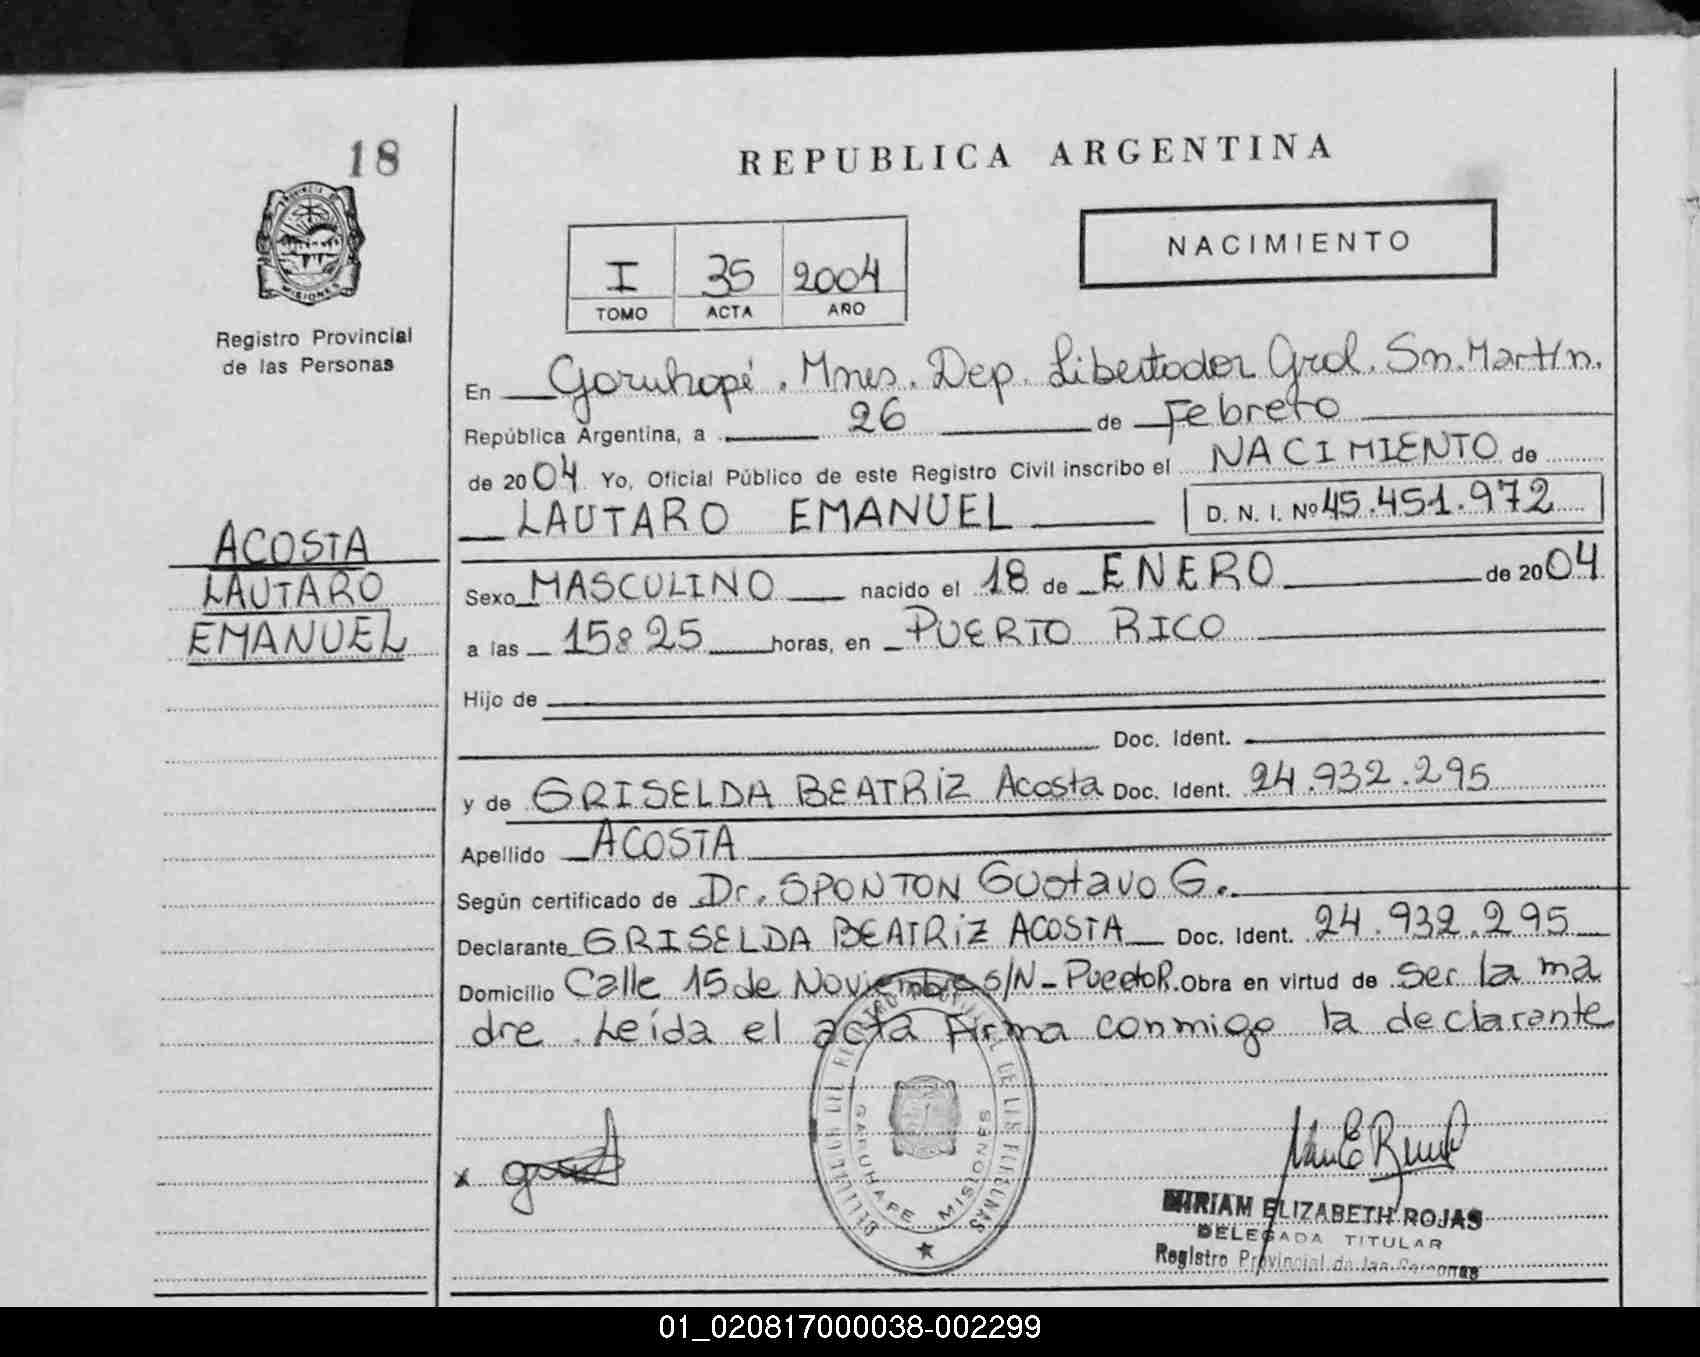 18
PROVINCIA DE
MISIONES
Registro Provincial
de las Personas
ACOSTA
LAUTARO
EMANUEL
REPUBLICA ARGENTINA
I 35 2004
TOMO ACTA AÑO
NACIMIENTO
En Garuhapé. Mnes. Dep. Libertador Gral. Sn. Martín.
República Argentina, a 26 de Febrero
de 2004 Yo, Oficial Público de este Registro Civil inscribo el NACIMIENTO de
LAUTARO EMANUEL D. N. I. Nº 45.451.972
Sexo MASCULINO nacido el 18 de ENERO de 2004
a las 15:25 horas, en PUERTO RICO
Hijo de
Doc. Ident.
y de GRISELDA BEATRIZ Acosta Doc. Ident. 24.932.295
Apellido ACOSTA
Según certificado de Dr. SPONTON Gustavo G.
Declarante GRISELDA BEATRIZ ACOSTA Doc. Ident. 24.932.295
Domicilio Calle 15 de Noviembre s/N - Puerto R. Obra en virtud de ser la ma
dre. Leída el acta Firma conmigo la declarante
DEL REGISTRO DE LAS PERSONAS
GARUHAPE MISIONES
x
MIRIAM ELIZABETH ROJAS
DELEGADA TITULAR
Registro Provincial de las Personas
01_020817000038-002299